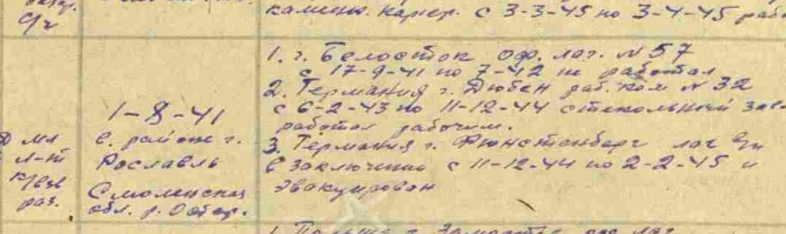 камены. карер. с 3-3-45 по 3-4-45 раб
с/г
1. г. Белосток оф. лаг. № 57
с 17-9-41 по 7-42 не работал
2. Германия г. Дюбен раб. ком № 32
1-8-41
с 6-2-43 по 11-12-44 стекольный зав
работал рабочим.
в районе г.
3. Германия г. Фюнстенберг лаг
мл
л-т
Рославль
в заключении с 11-12-44 по 2-2-45 и
к-р взв
эвакуирован
раз.
Смоленская
обл. р.